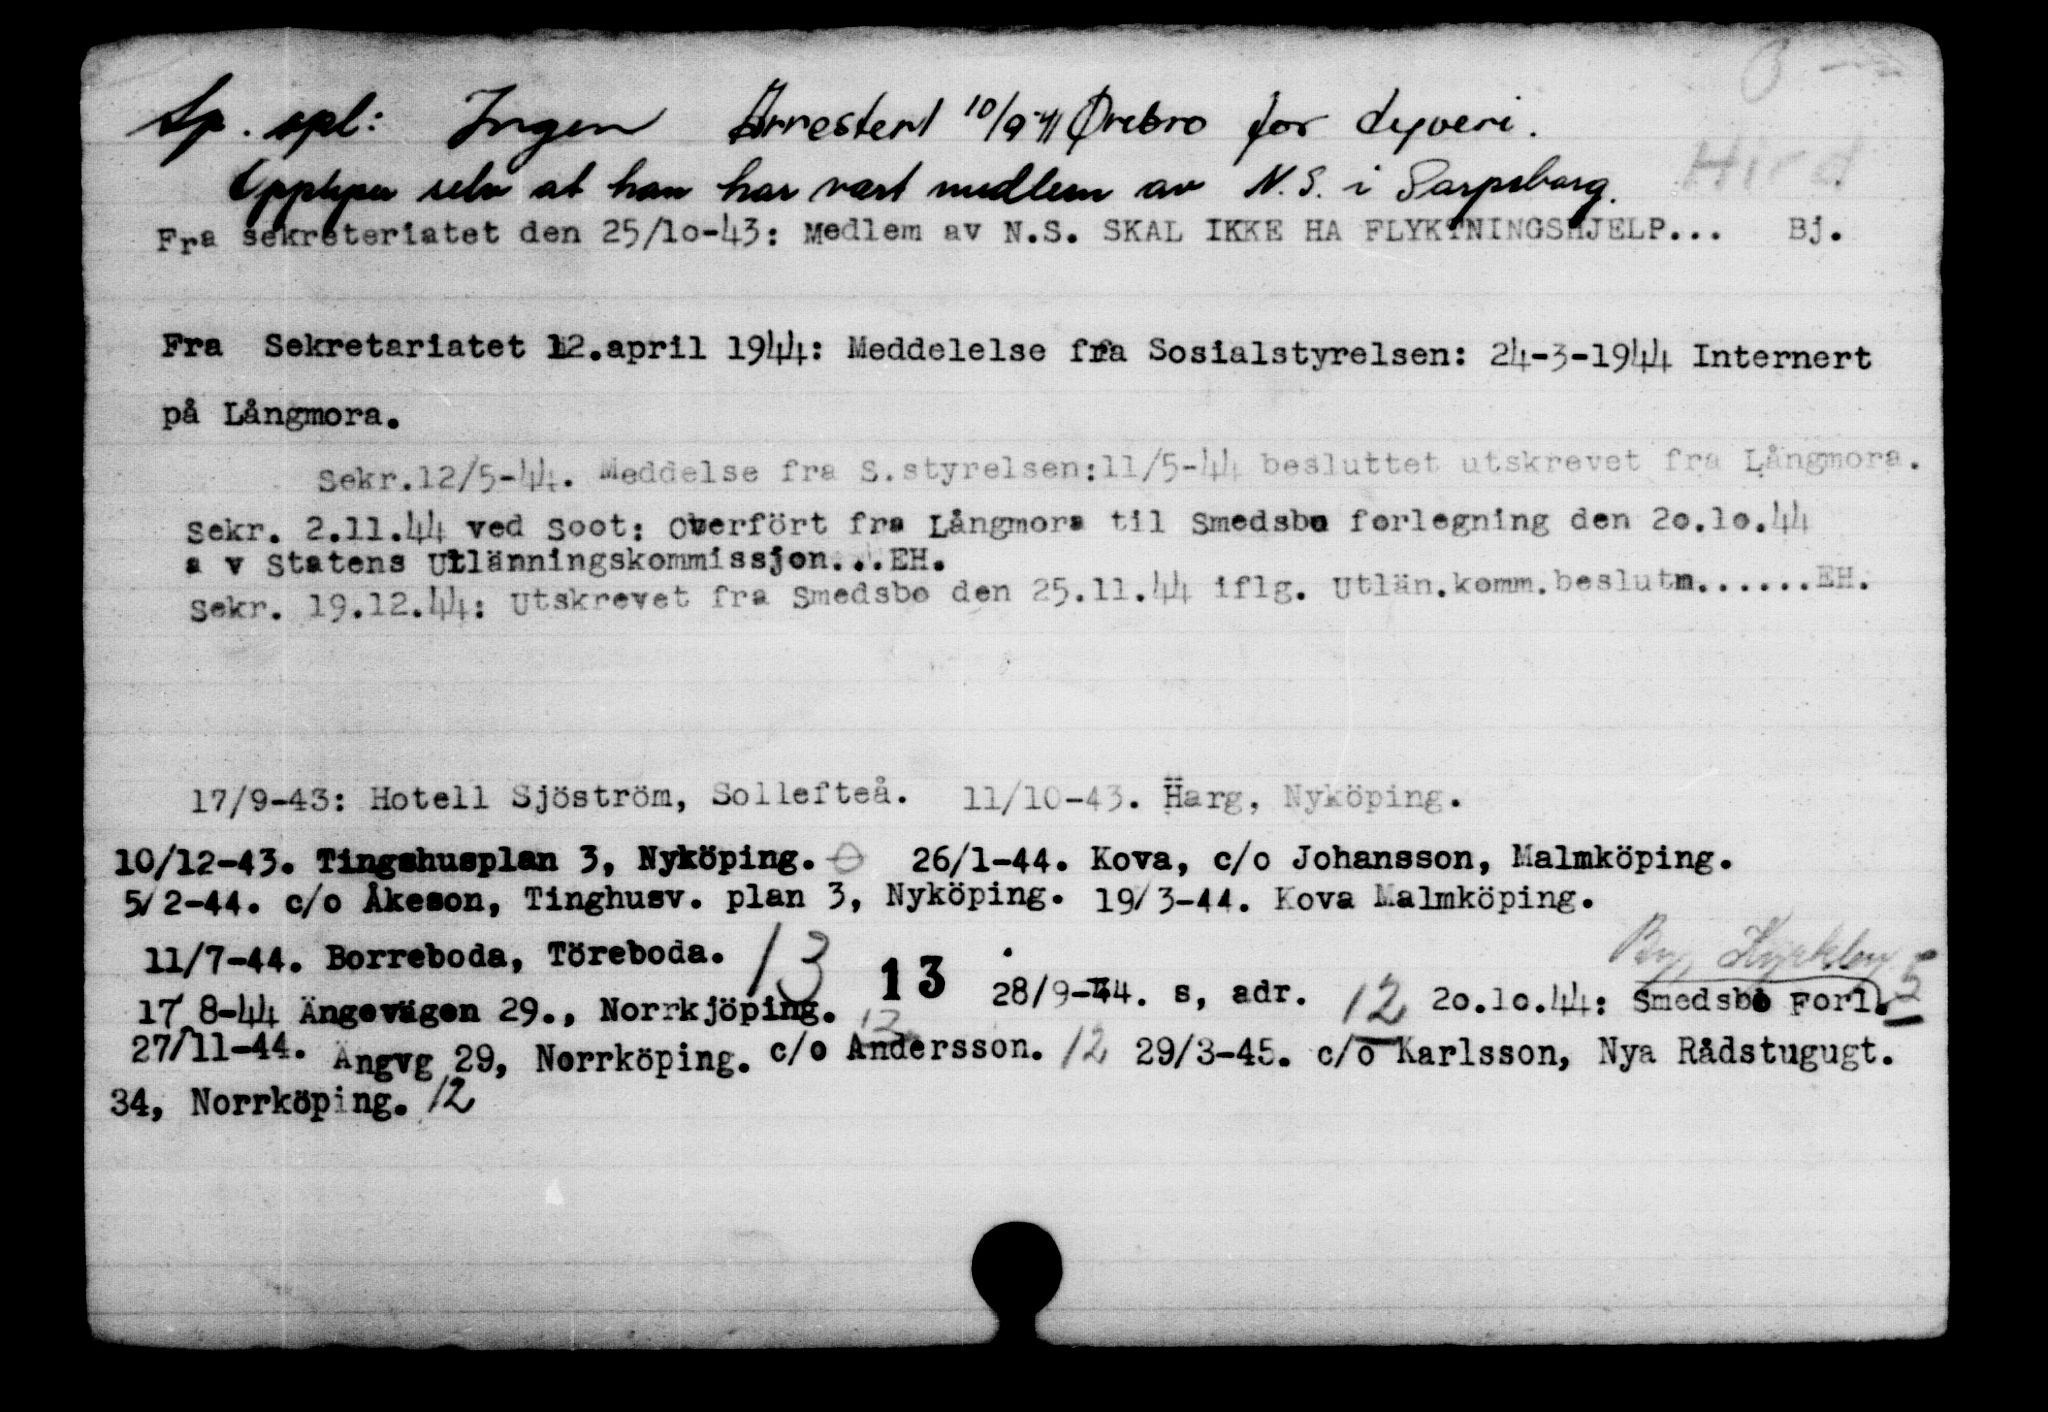 Sp. spl: Ingen Arrestert 10/9-41 Örebro for tyveri.
Opplyser selv at han har vært medlem av N.S. i Sarpsborg.
Hird
Fra sekreteriatet den 25/10-43: Medlem av N.S. SKAL IKKE HA FLYKTNINGSHJELP... Bj.
Fra Sekretariatet 12.april 1944: Meddelelse fra Sosialstyrelsen: 24-3-1944 Internert
på Långmora.
Sekr.12/5-44. Meddelse fra S.styrelsen:11/5-44 besluttet utskrevet fra Långmora.
Sekr. 2.11.44 ved Soot: Overfört fra Långmora til Smedsbo forlegning den 20.10.44
a v Statens Utlänningskommissjon...EH.
Sekr. 19.12.44: Utskrevet fra Smedsbo den 25.11.44 iflg. Utlän.komm.beslutn......EH.
17/9-43: Hotell Sjöström, Sollefteå. 11/10-43. Harg, Nyköping.
10/12-43. Tingshusplan 3, Nyköping. 26/1-44. Kova, c/o Johansson, Malmköping.
5/2-44. c/o Åkeson, Tinghusv. plan 3, Nyköping. 19/3-44. Kova Malmköping.
11/7-44. Borreboda, Töreboda. 13 13 28/9-44. s, adr. 12 20.10.44: Smedsbo Forl. 5
17/8-44 Ängevägen 29., Norrkjöping.
27/11-44. Ängvg 29, Norrköping. c/o Andersson. 12 29/3-45. c/o Karlsson, Nya Rådstugugt.
34, Norrköping. 12